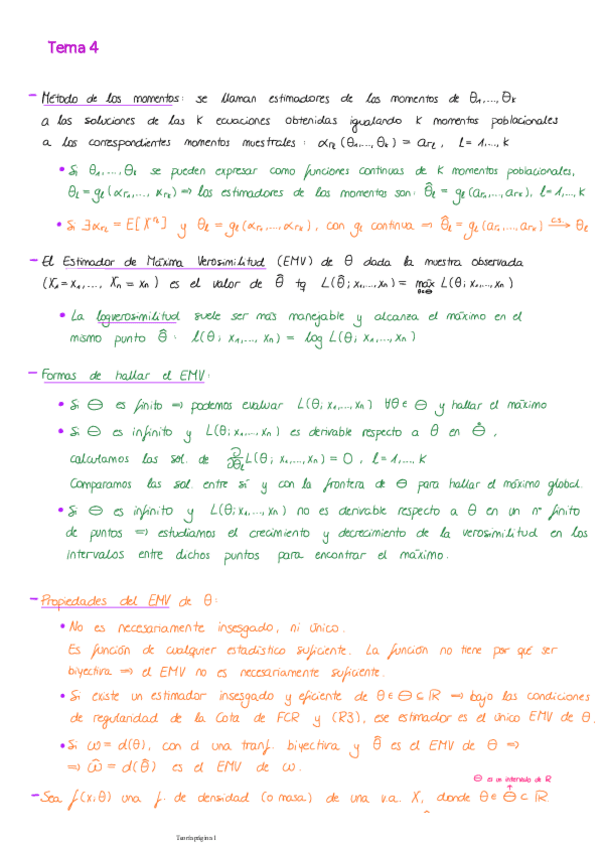 Tema 4
- Método de los momentos: se llaman estimadores de los momentos de θ₁,...,θₖ
a las soluciones de las K ecuaciones obtenidas igualando K momentos poblacionales
a los correspondientes momentos muestrales: α_{r_l}(θ₁,...,θₖ) = a_{r_l}, l = 1,..., k
• Si θ₁,...,θₖ se pueden expresar como funciones continuas de K momentos poblacionales,
θ_l = g_l(α_{r₁},..., α_{rₖ}) ⇒ los estimadores de los momentos son: θ̂_l = g_l(a_{r₁},..., a_{rₖ}), l=1,..., k
• Si ∃α_{r_l} = E[X^{r_l}] y θ_l = g_l(α_{r₁},..., α_{rₖ}), con g_l continua ⇒ θ̂_l = g_l(a_{r₁},..., a_{rₖ}) →^{c.s.} θ_l
- El Estimador de Máxima Verosimilitud (EMV) de θ dada la muestra observada
(X₁=x₁,..., Xₙ=xₙ) es el valor de θ̂ tq L(θ̂; x₁,..., xₙ) = máx_{θ∈Θ} L(θ; x₁,..., xₙ)
• La logverosimilitud suele ser más manejable y alcanza el máximo en el
mismo punto θ̂: l(θ; x₁,..., xₙ) = log L(θ; x₁,..., xₙ)
- Formas de hallar el EMV:
• Si Θ es finito ⇒ podemos evaluar L(θ; x₁,..., xₙ) ∀θ∈Θ y hallar el máximo
• Si Θ es infinito y L(θ; x₁,..., xₙ) es derivable respecto a θ en Θ̊,
calculamos las sol. de ∂/∂θ_l L(θ; x₁,..., xₙ) = 0, l = 1,..., K
Comparamos las sol. entre sí y con la frontera de Θ para hallar el máximo global.
• Si Θ es infinito y L(θ; x₁,..., xₙ) no es derivable respecto a θ en un nº finito
de puntos ⇒ estudiamos el crecimiento y decrecimiento de la verosimilitud en los
intervalos entre dichos puntos para encontrar el máximo.
- Propiedades del EMV de θ:
• No es necesariamente insesgado, ni único.
Es función de cualquier estadístico suficiente. La función no tiene por qué ser
biyectiva ⇒ el EMV no es necesariamente suficiente.
• Si existe un estimador insesgado y eficiente de θ∈Θ⊂ℝ ⇒ bajo las condiciones
de regularidad de la Cota de FCR y (R3), ese estimador es el único EMV de θ.
• Si ω = d(θ), con d una tranf. biyectiva y θ̂ es el EMV de θ ⇒
⇒ ω̂ = d(θ̂) es el EMV de ω.
Θ es un intervalo de ℝ
- Sea f(x;θ) una f. de densidad (o masa) de una v.a. X, donde θ∈Θ⊂ℝ.
Teoría página 1